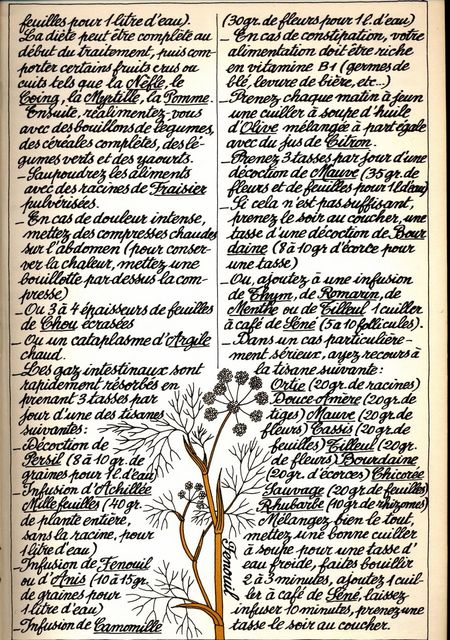 feuilles pour 1 litre d'eau).
_ La diète peut être complète au
début du traitement, puis com-
porter certains fruits crus ou
cuits tels que la Nèfle, le
Coing, la Myrtille, la Pomme.
_ Ensuite, réalimentez-vous
avec des bouillons de légumes,
des céréales complètes, des lé-
gumes verts et des yaourts.
_ Saupoudrez les aliments
avec des racines de Fraisier
pulvérisées.
_ En cas de douleur intense,
mettez des compresses chaudes
sur l'abdomen (pour conser-
ver la chaleur, mettez une
bouillotte par dessus la com-
presse)
_ Ou 3 à 4 épaisseurs de feuilles
de Chou écrasées
_ Ou un cataplasme d'Argile
chaud.
_ Les gaz intestinaux sont
rapidement résorbés en
prenant 3 tasses par
jour d'une des tisanes
suivantes:
_ Décoction de
Persil (8 à 10 gr. de
graines pour 1 l. d'eau)
_ Infusion d'Achillée
Millefeuilles (40 gr.
de plante entière,
sans la racine, pour
1 litre d'eau)
_ Infusion de Fenouil
ou d'Anis (10 à 15 gr.
de graines pour
1 litre d'eau)
_ Infusion de Camomille
(30 gr. de fleurs pour 1 l. d'eau)
_ En cas de constipation, votre
alimentation doit être riche
en vitamine B1 (germes de
blé, levure de bière, etc...)
_ Prenez chaque matin à jeun
une cuiller à soupe d'huile
d'Olive mélangée à part égale
avec du jus de Citron.
_ Prenez 3 tasses par jour d'une
décoction de Mauve (35 gr. de
fleurs et de feuilles pour 1 l. d'eau)
_ Si cela n'est pas suffisant,
prenez le soir au coucher, une
tasse d'une décoction de Bour
daine (8 à 10 gr d'écorce pour
une tasse)
_ Ou, ajoutez à une infusion
de Thym, de Romarin, de
Menthe ou de Tilleul 1 cuiller
à café de Séné (5 à 10 follicules).
_ Dans un cas particulière-
ment sérieux, ayez recours à
la tisane suivante:
Ortie (20 gr. de racines)
Douce-Amère (20 gr. de
tiges) Mauve (20 gr. de
fleurs) Cassis (20 gr. de
feuilles) Tilleul (20 gr.
de fleurs) Bourdaine
(20 gr. d'écorces) Chicorée
Sauvage (20 gr de feuilles)
Rhubarbe (10 gr de rhizomes)
Mélangez bien le tout,
mettez une bonne cuiller
à soupe pour une tasse d'
eau froide, faites bouillir
2 à 3 minutes, ajoutez 1 cuil
ler à café de Séné, laissez
infuser 10 minutes, prenez une
tasse le soir au coucher.
Fenouil